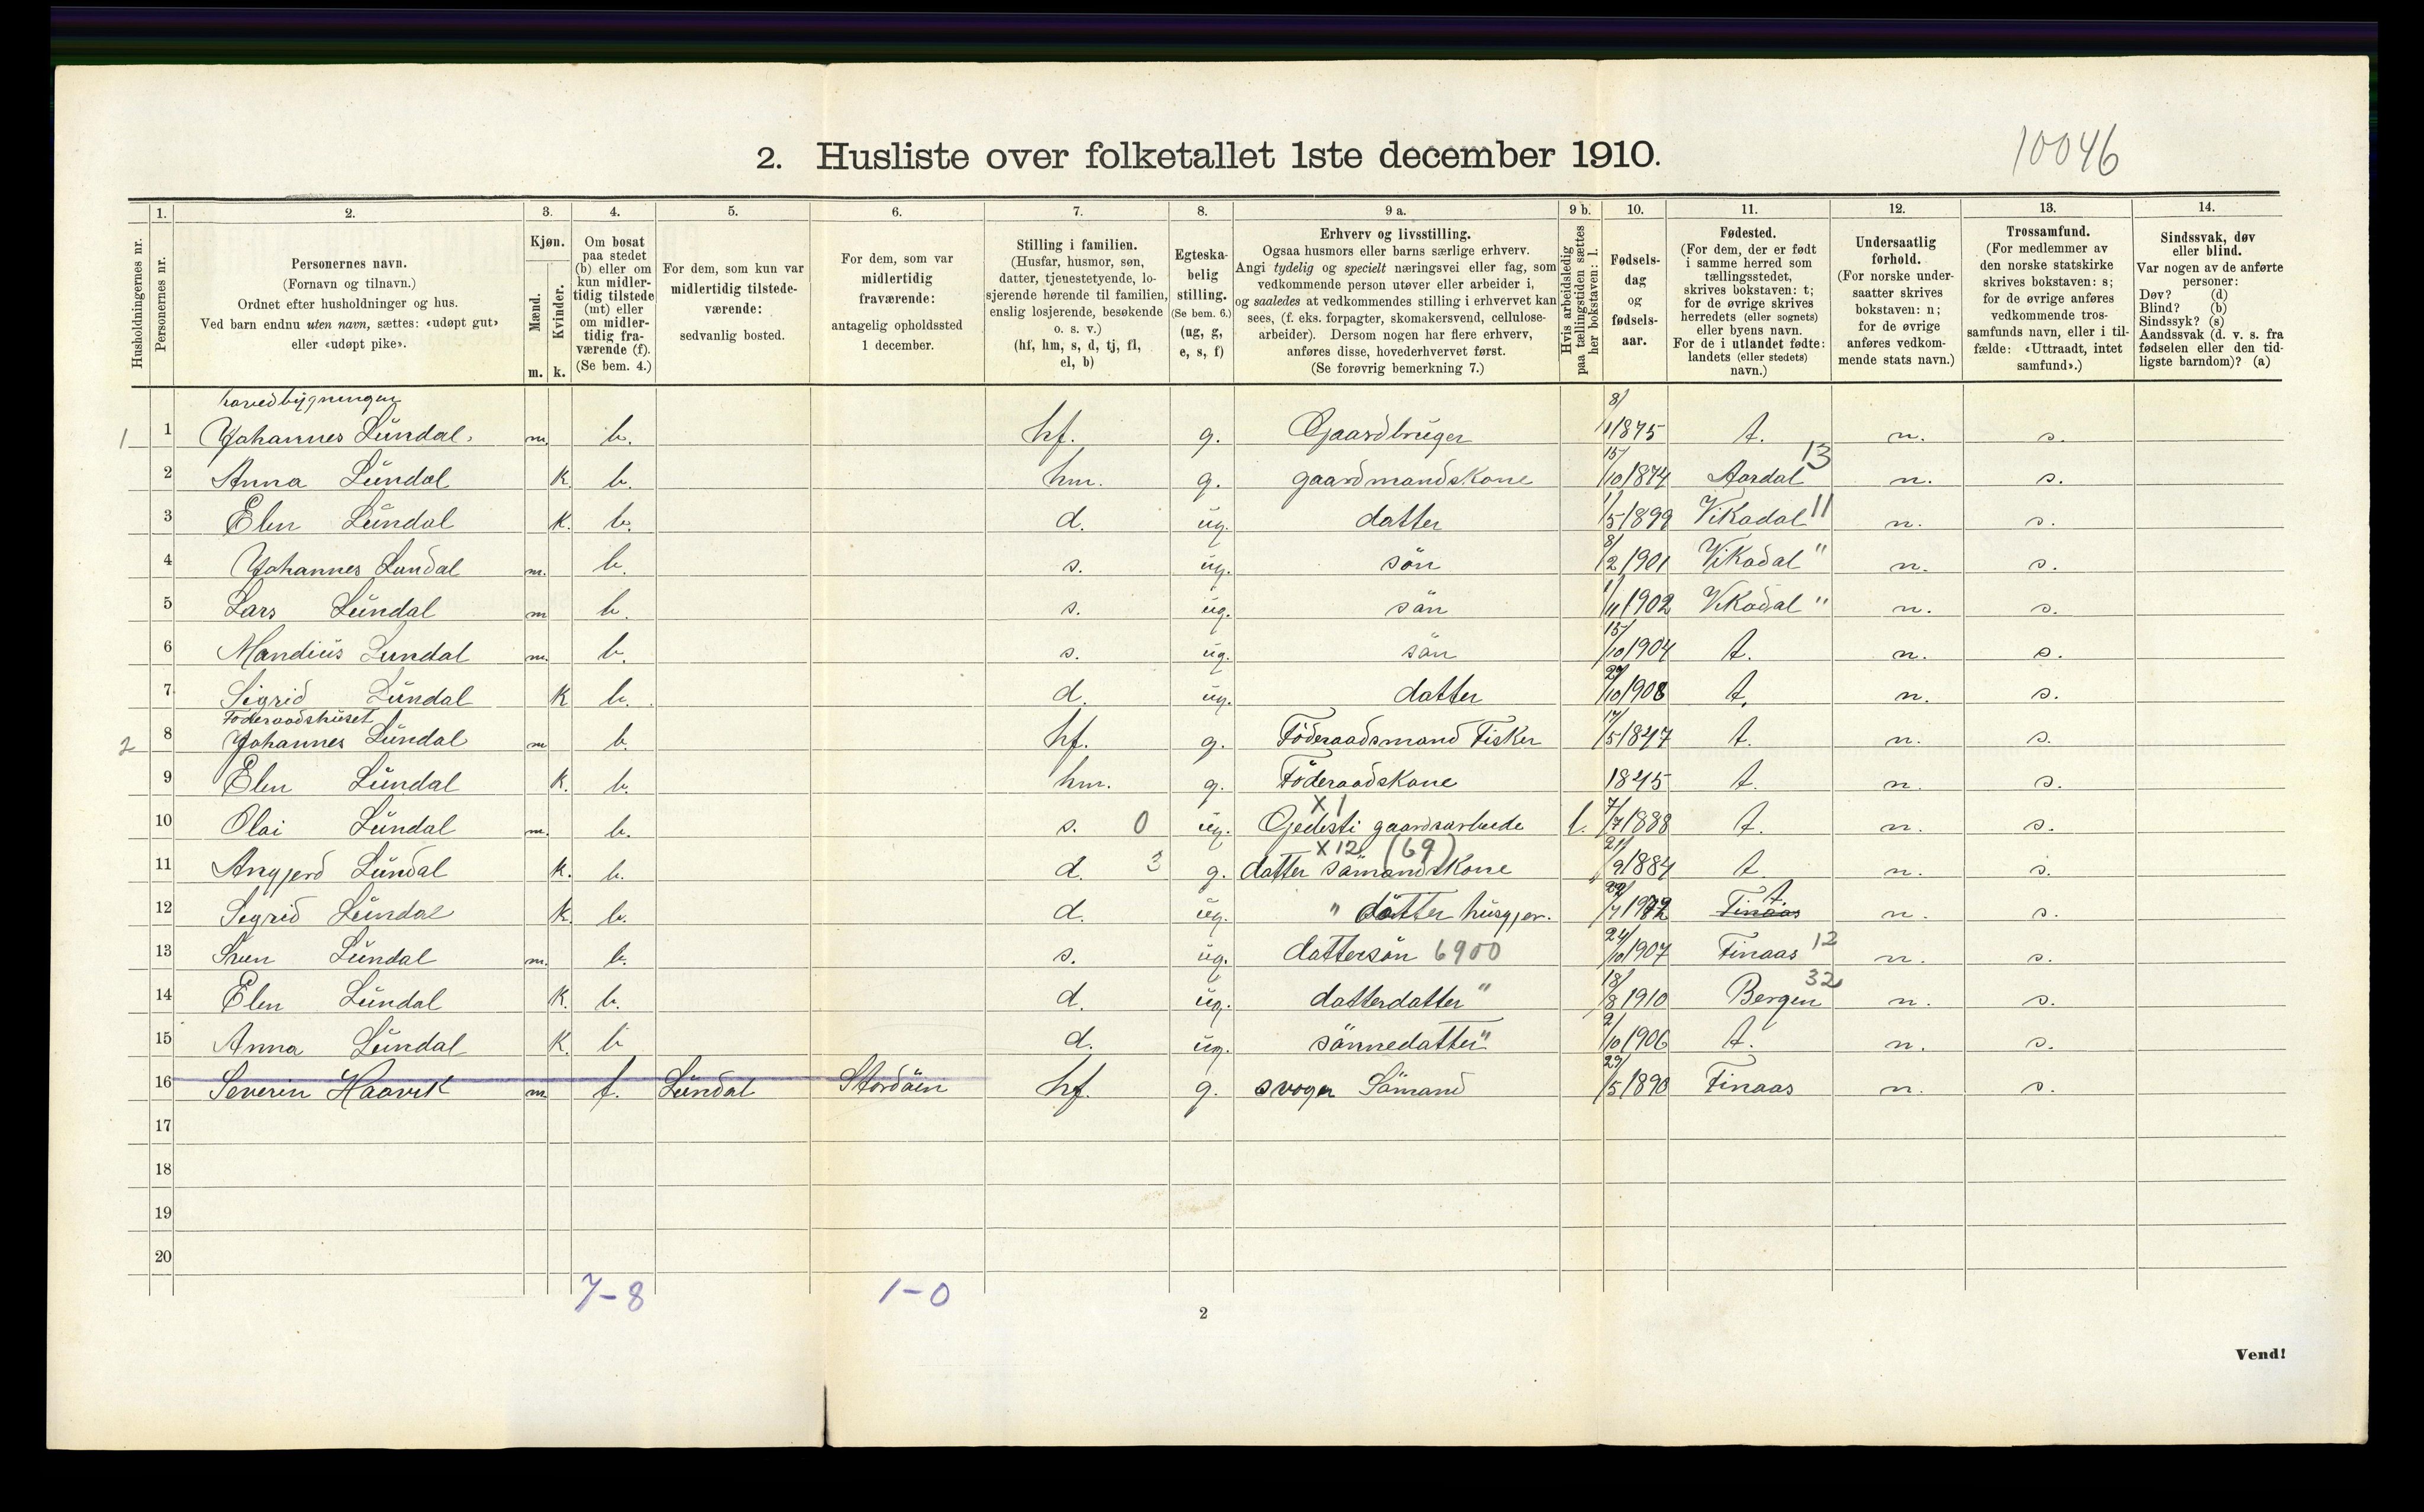 2. Husliste over folketallet 1ste december 1910.
10046
1. 2. 3. 4. 5. 6. 7. 8. 9 a. 9 b. 10. 11. 12. 13. 14.
Husholdningernes nr.
Personernes nr.
Personernes navn.
(Fornavn og tilnavn.)
Ordnet efter husholdninger og hus.
Ved barn endnu uten navn, sættes: «udøpt gut»
eller «udøpt pike».
Kjøn.
Mænd.
Kvinder.
m. k.
Om bosat
paa stedet
(b) eller om
kun midler-
tidig tilstede
(mt) eller
om midler-
tidig fra-
værende (f).
(Se bem. 4.)
For dem, som kun var
midlertidig tilstede-
værende:
sedvanlig bosted.
For dem, som var
midlertidig
fraværende:
antagelig opholdssted
1 december.
Stilling i familien.
(Husfar, husmor, søn,
datter, tjenestetyende, lo-
sjerende hørende til familien,
enslig losjerende, besøkende
o. s. v.)
(hf, hm, s, d, tj, fl,
el, b)
Egteska-
belig
stilling.
(Se bem. 6.)
(ug, g,
e, s, f)
Erhverv og livsstilling.
Ogsaa husmors eller barns særlige erhverv.
Angi tydelig og specielt næringsvei eller fag, som
vedkommende person utøver eller arbeider i,
og saaledes at vedkommendes stilling i erhvervet kan
sees, (f. eks. forpagter, skomakersvend, cellulose-
arbeider). Dersom nogen har flere erhverv,
anføres disse, hovederhvervet først.
(Se forøvrig bemerkning 7.)
Hvis arbeidsledig
paa tællingstiden sættes
her bokstaven: l.
Fødsels-
dag
og
fødsels-
aar.
Fødested.
(For dem, der er født
i samme herred som
tællingsstedet,
skrives bokstaven: t;
for de øvrige skrives
herredets (eller sognets)
eller byens navn.
For de i utlandet fødte:
landets (eller stedets)
navn.)
Undersaatlig
forhold.
(For norske under-
saatter skrives
bokstaven: n;
for de øvrige
anføres vedkom-
mende stats navn.)
Trossamfund.
(For medlemmer av
den norske statskirke
skrives bokstaven: s;
for de øvrige anføres
vedkommende tros-
samfunds navn, eller i til-
fælde: «Uttraadt, intet
samfund».)
Sindssvak, døv
eller blind.
Var nogen av de anførte
personer:
Døv? (d)
Blind? (b)
Sindssyk? (s)
Aandssvak (d. v. s. fra
fødselen eller den tid-
ligste barndom)? (a)
hovedbygningen
1 1 Johannes Lundal. m. b. hf. g. Gaardbruger 8/1 1875 t. n. s.
2 Anna Lundal k. b. hm. g. gaardmandskone 15/10 1874 Aardal 13 n. s.
3 Elen Lundal k. b. d. ug. datter 1/5 1899 Vikadal 11 n. s.
4 Johannes Lundal m. b. s. ug. sön 8/2 1901 Vikadal " n. s.
5 Lars Lundal m b. s. ug. sön 1/11 1902 Vikadal " n. s.
6 Mandius Lundal m. b. s. ug. sön 15/10 1904 t. n. s.
7 Sigrid Lundal k b. d. ug. datter 27/10 1908 t. n. s.
Föderaadshuset
2 8 Johannes Lundal m b. hf. g. Föderaadsmand Fisker 17/5 1847 t. n. s.
9 Elen Lundal k. b. hm. g. Föderaadskone 1845 t. n. s.
X 1
10 Olai Lundal m. b. s. 0 ug. Gjedesti gaardsarbeide l. 7/7 1888 t. n. s.
X 12 (69)
11 Angjerd Lundal k. b. d. 3 g. datter sömandskone 21/9 1884 t n. s.
12 Sigrid Lundal k. b. d. ug. " datter husgjer. Finaas t. n. s.
13 Sven Lundal m. b. s. ug. dattersön 6900 24/10 1907 Finaas 12 n. s.
14 Elen Lundal k. b. d. ug. datterdatter " 18/8 1910 Bergen 32 n. s.
15 Anna Lundal k. b d. ug. sönnedatter " 2/10 1906 t. n. s.
16 Severin Haavik m. f. Lundal Stordöen hf. g. svoger Sömand 29/5 1890 Finaas n. s.
17
18
19
20
7-8 1-0
2
Vend!